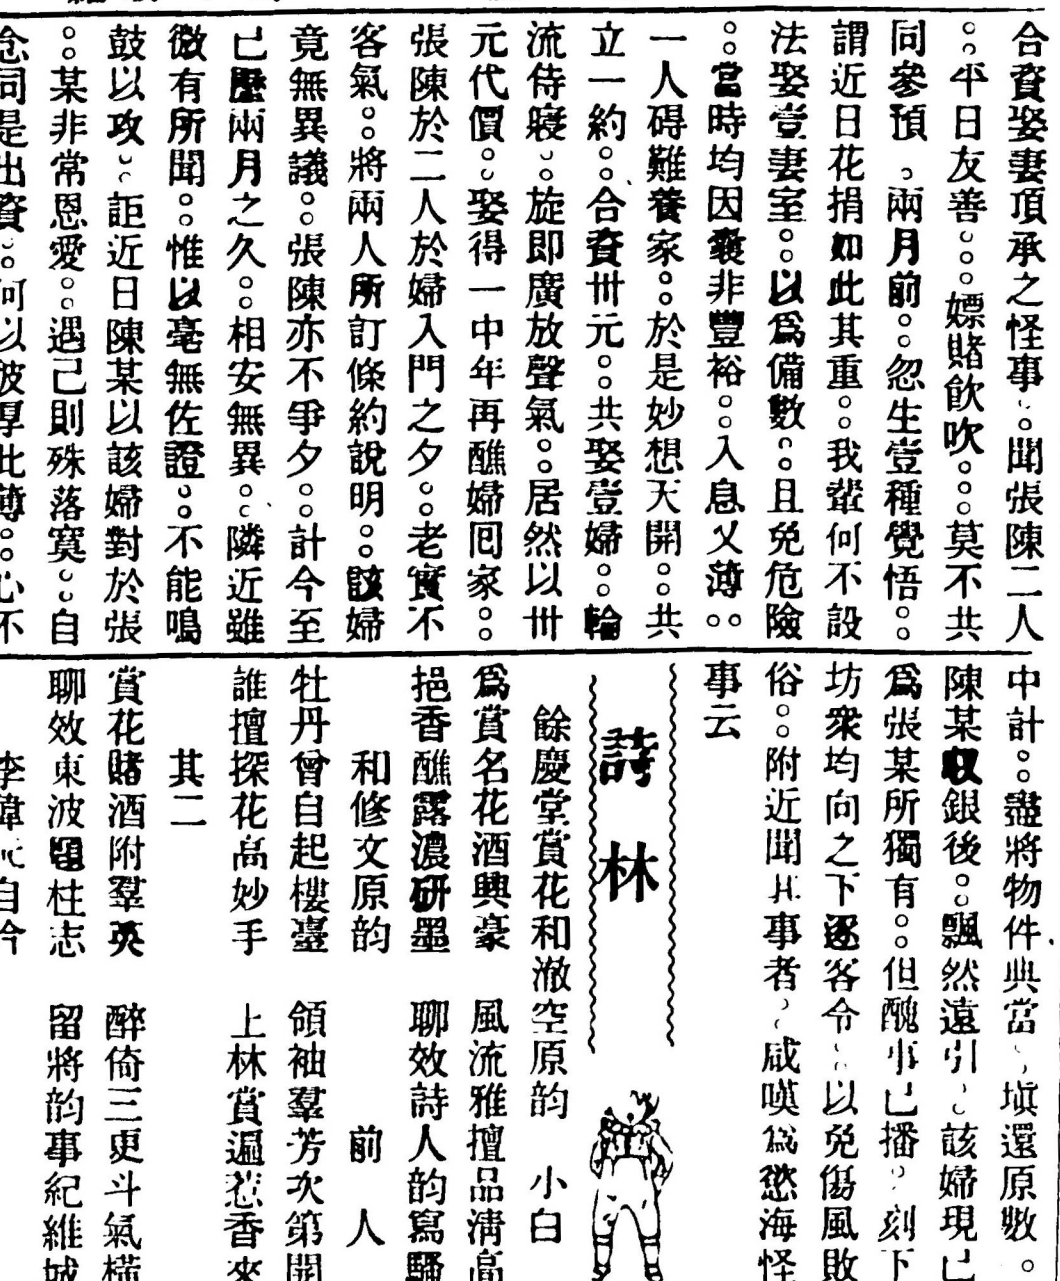 合資娶妻頂承之怪事。聞張陳二人
。平日友善。。嫖賭飲吹。。莫不共
同參預。兩月前。。忽生壹種覺悟。。
謂近日花捐如此其重。。我輩何不設
法娶壹妻室。。以爲備數。。且免危險
。。當時均因囊非豐裕。。入息乂薄。。
一人碍難養家。。於是妙想天開。。共
立一約。。合資卅元。。共娶壹婦。。輪
流侍寢。。旋即廣放聲氣。。居然以卅
元代價。。娶得一中年再醮婦囘家。。
張陳於二人於婦入門之夕。。老實不
客氣。。將兩人所訂條約說明。。該婦
竟無異議。。張陳亦不爭夕。。計今至
已歷兩月之久。。相安無異。。隣近雖
微有所聞。。惟以毫無佐證。。不能鳴
鼓以攻。。詎近日陳某以該婦對於張
。。某非常恩愛。。遇己則殊落寞。。自
念同是出資。。何以彼厚此薄。。心不
中計。。盡將物件典當、塡還原數。。
陳某收銀後。。飄然遠引。該婦現已
爲張某所獨有。。但醜事已播。刻下
坊衆均向之下逐客令。以免傷風敗
俗。。附近聞其事者。咸嘆爲慾海怪
事云
詩林
餘慶堂賞花和澈空原韵 小白
爲賞名花酒興豪 風流雅擅品淸高
挹香醮露濃硏墨 聊效詩人韵寫騷
和修文原韵 前人
牡丹曾自起樓臺 領袖羣芳次第開
誰擅探花高妙手 上林賞遍惹香來
其二
賞花賭酒附羣英 醉倚三更斗氣橫
聊效東波題柱志 留將韵事紀維城